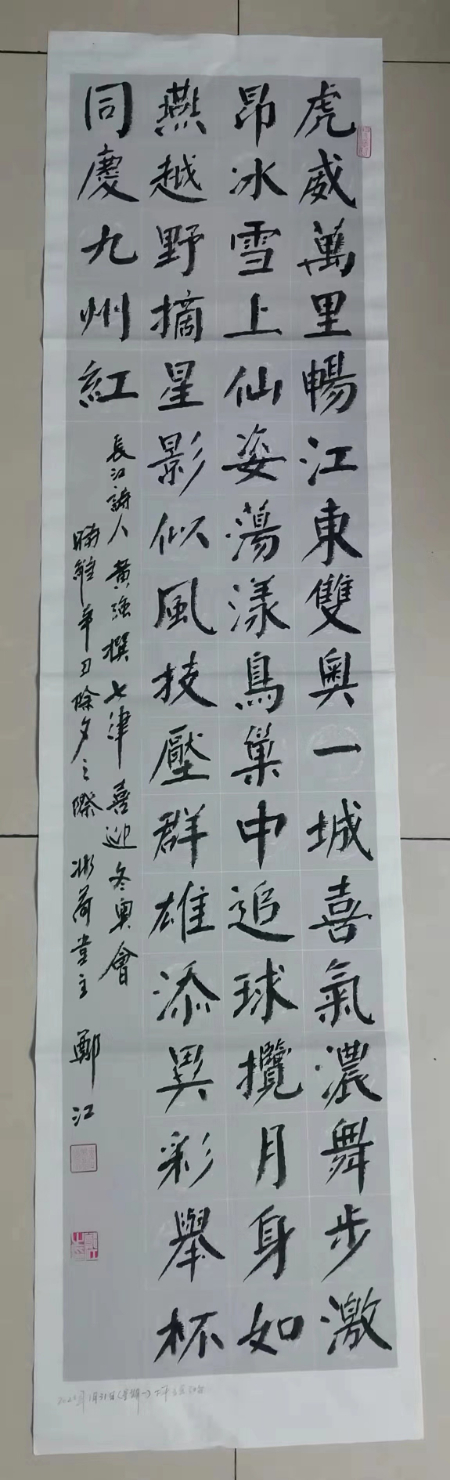 虎威萬里暢江東雙奧一城喜氣濃舞步激
昂冰雪上仙姿蕩漾鳥巢中追球攬月身如
燕越野摘星影似風技壓群雄添異彩舉杯
同慶九州紅
長江詩人黃強撰七律喜迎冬奧會
辛丑除夕之際 荷堂主 鄭江
1月31日(星期一)下午